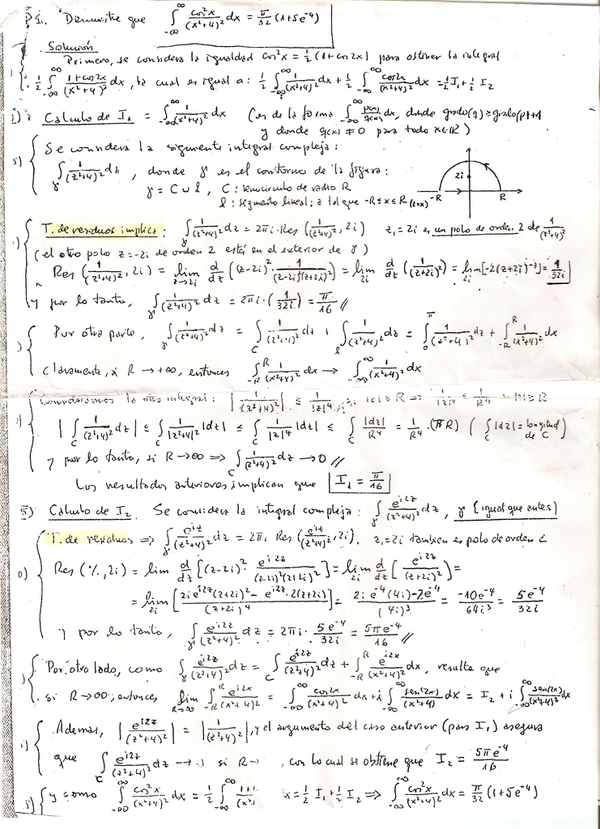 P1. Demuestre que ∫_{-∞}^{∞} cos²x/(x²+4)² dx = π/32 (1+5e⁻⁴)
Solución
Primero, se considera la igualdad cos²x = 1/2 (1+cos2x) para obtener la integral
1/2 ∫_{-∞}^{∞} (1+cos2x)/(x²+4)² dx, la cual es igual a: 1/2 ∫_{-∞}^{∞} 1/(x²+4)² dx + 1/2 ∫_{-∞}^{∞} cos2x/(x²+4)² dx = 1/2 I₁ + 1/2 I₂
Cálculo de I₁ = ∫_{-∞}^{∞} 1/(x²+4)² dx (es de la forma ∫_{-∞}^{∞} p(x)/q(x) dx, donde grado(q) ≥ grado(p)+1
y donde q(x) ≠ 0 para todo x∈ℝ)
Se considera la siguiente integral compleja:
∫_γ 1/(z²+4)² dz, donde γ es el contorno de la figura:
γ = C ∪ l, C: semicírculo de radio R
l: segmento lineal: z tal que -R ≤ x ≤ R
2i
-R R
T. de residuos implica: ∫_γ 1/(z²+4)² dz = 2πi · Res (1/(z²+4)², 2i) z₁ = 2i es un polo de orden 2 de 1/(z²+4)²
(el otro polo z = -2i de orden 2 está en el exterior de γ)
Res (1/(z²+4)², 2i) = lim_{z→2i} d/dz ((z-2i)² · 1/((z-2i)²(z+2i)²)) = lim_{2i} d/dz (1/(z+2i)²) = lim_{2i} [-2(z+2i)⁻³] = 1/32i
y por lo tanto, ∫_γ 1/(z²+4)² dz = 2πi · (1/32i) = π/16 //
Por otra parte, ∫_γ 1/(z²+4)² dz = ∫_C 1/(z²+4)² dz + ∫_l 1/(z²+4)² dz = ∫_0^π 1/(z²+4)² dz + ∫_{-R}^{R} 1/(x²+4)² dx
Claramente, si R → +∞, entonces ∫_{-R}^{R} 1/(x²+4)² dx → ∫_{-∞}^{∞} 1/(x²+4)² dx
Consideramos la otra integral: |1/(z²+4)²| ≤ 1/|z|⁴ R ⇒ 1/|z|⁴ ≤ 1/R⁴
|∫_C 1/(z²+4)² dz| ≤ ∫_C 1/|z²+4|² |dz| ≤ ∫_C 1/|z|⁴ |dz| ≤ ∫_C |dz|/R⁴ = 1/R⁴ · (πR) (∫_C |dz| = longitud de C)
y por lo tanto, si R→∞ ⇒ ∫_C 1/(z²+4)² dz → 0 //
Los resultados anteriores implican que I₁ = π/16
II) Cálculo de I₂. Se considera la integral compleja: ∫_γ e^{i2z}/(z²+4)² dz, γ [igual que antes]
T. de residuos ⇒ ∫_γ e^{i2z}/(z²+4)² dz = 2πi Res (e^{i2z}/(z²+4)², 2i), z₁=2i también es polo de orden 2
Res (%, 2i) = lim_{2i} d/dz [(z-2i)² · e^{i2z}/((z-2i)²(z+2i)²)] = lim_{2i} d/dz [e^{i2z}/(z+2i)²] =
= lim_{2i} [(2i e^{i2z}(z+2i)² - e^{i2z} · 2(z+2i))/(z+2i)⁴] = (2i e⁻⁴(4i) - 2e⁻⁴)/(4i)³ = -10e⁻⁴/64i³ = 5e⁻⁴/32i
y por lo tanto, ∫_γ e^{i2z}/(z²+4)² dz = 2πi · 5e⁻⁴/32i = 5πe⁻⁴/16 //
Por otro lado, como ∫_γ e^{i2z}/(z²+4)² dz = ∫_C e^{i2z}/(z²+4)² dz + ∫_{-R}^{R} e^{i2x}/(x²+4)² dx, resulta que
si R→∞, entonces lim_{R→∞} ∫_{-R}^{R} e^{i2x}/(x²+4)² = ∫_{-∞}^{∞} cos2x/(x²+4)² dx + i ∫_{-∞}^{∞} sen(2x)/(x²+4)² dx = I₂ + i ∫_{-∞}^{∞} sen(2x)/(x²+4)² dx
Además, |e^{i2z}/(z²+4)²| = |1/(z²+4)²|, y el argumento del caso anterior (para I₁) asegura
que ∫_C e^{i2z}/(z²+4)² dz → 0 si R→ , con lo cual se obtiene que I₂ = 5πe⁻⁴/16
y como ∫_{-∞}^{∞} cos²x/(x²+4)² dx = 1/2 ∫_{-∞}^{∞} x = 1/2 I₁ + 1/2 I₂ ⇒ ∫_{-∞}^{∞} cos²x/(x²+4)² dx = π/32 (1+5e⁻⁴)